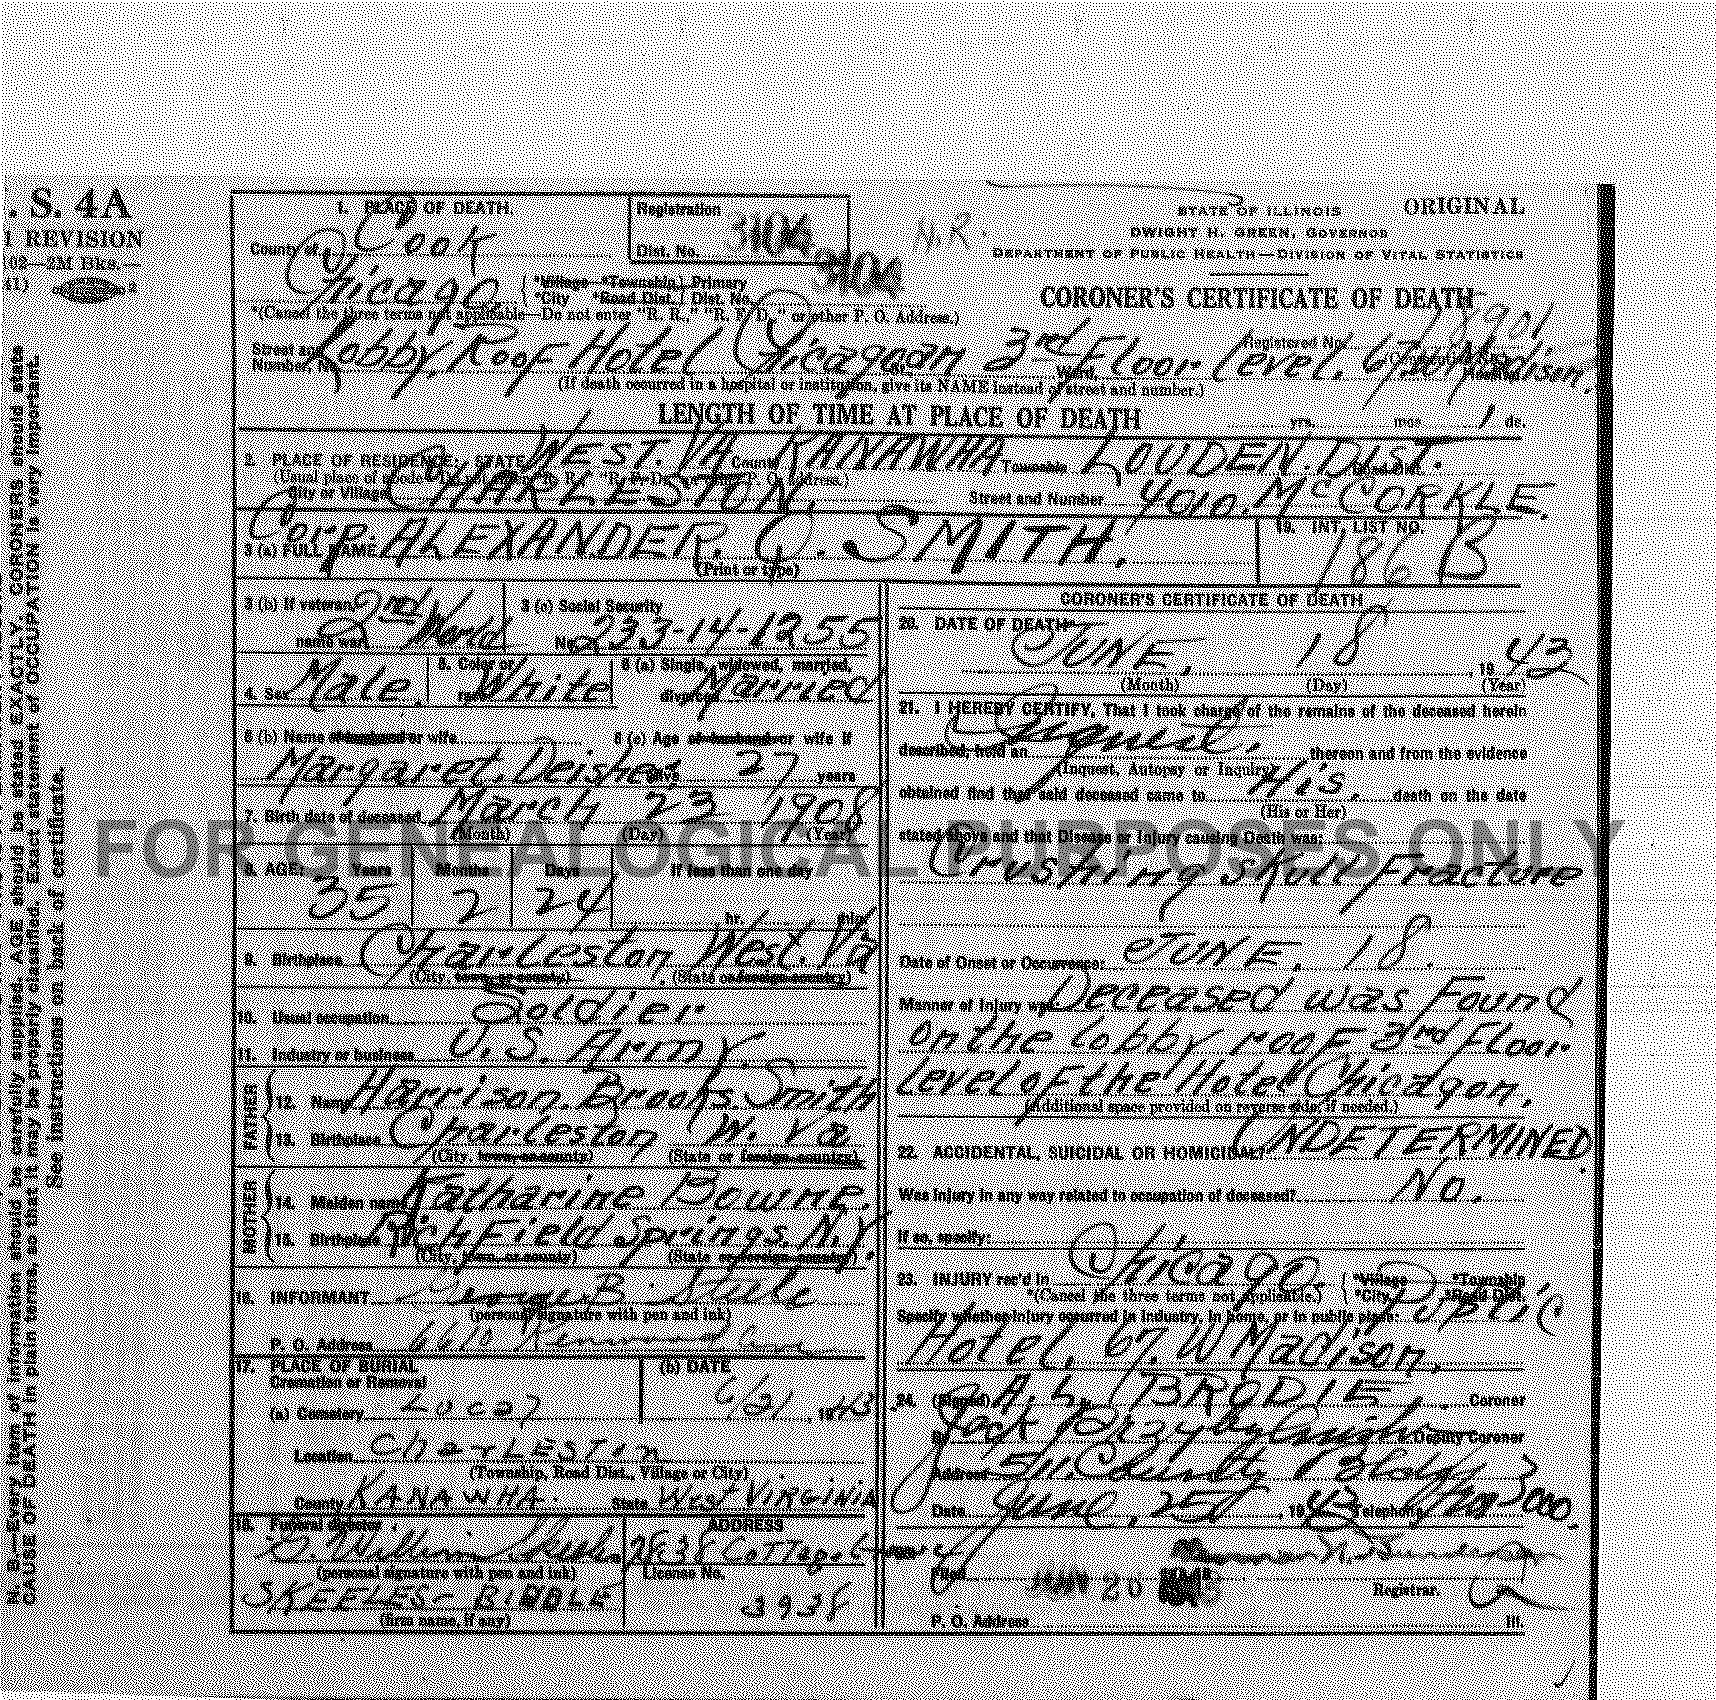 . S. 4A
1 REVISION
102—2M Bks.—
41)
N. B.—Every item of information should be carefully supplied. AGE should be stated EXACTLY. CORONERS should state
CAUSE OF DEATH in plain terms, so that it may be properly classified. Exact statement of OCCUPATION is very important.
See instructions on back of certificate.
1. PLACE OF DEATH.
Registration
Dist. No.
STATE OF ILLINOIS
ORIGINAL
DWIGHT H. GREEN, GOVERNOR
DEPARTMENT OF PUBLIC HEALTH—DIVISION OF VITAL STATISTICS
County of Cook
Chicago. *Village *Township Primary
*City *Road Dist. Dist. No.
*(Cancel the three terms not applicable—Do not enter "R. R.," "R. F. D.," or other P. O. Address.)
CORONER'S CERTIFICATE OF DEATH
Registered No.
Street and Number, No. Lobby, Roof Hotel Chicagoan 3rd Floor Level, 67 W Madison.
(If death occurred in a hospital or institution, give its NAME instead of street and number.)
LENGTH OF TIME AT PLACE OF DEATH yrs. mos. 1 ds.
2. PLACE OF RESIDENCE: STATE WEST. VA County KANAWHA Township LOUDEN. DIST. Road Dist.
City or Village CHARLESTON Street and Number 4010. McCORKLE.
3 (a) FULL NAME Corp. ALEXANDER. C. SMITH.
(Print or type)
19. INT. LIST NO.
186 B
3 (b) If veteran, name war 2nd World
3 (c) Social Security No. 233-14-1255
4. Sex Male. 5. Color or race White 6 (a) Single, widowed, married, divorced Married
6 (b) Name of husband or wife 6 (c) Age of husband or wife if
Margaret. Deisher alive 27 years
7. Birth date of deceased March 23 1908
(Month) (Day) (Year)
8. AGE: Years Months Days If less than one day
35 2 24 hr. min.
9. Birthplace Charleston West. Va
(City, town, or county) (State or foreign country)
10. Usual occupation Soldier
11. Industry or business U. S. Army.
FATHER
12. Name Harrison. Brooks. Smith
13. Birthplace Charleston W. Va
(City, town, or county) (State or foreign country)
MOTHER
14. Maiden name Katharine Bowne.
15. Birthplace Richfield Springs. N.Y.
(City, town, or county) (State or foreign country)
16. INFORMANT
(personal signature with pen and ink)
P. O. Address
17. PLACE OF BURIAL (b) DATE
Cremation or Removal
(a) Cemetery Local 6/21, 1943.
Location Charleston
(Township, Road Dist., Village or City)
County KANAWHA. State WEST VIRGINIA
18. Funeral director ADDRESS
2838 Cottage Grove
(personal signature with pen and ink) License No.
SKEELES-BIDDLE 3938
(firm name, if any)
CORONER'S CERTIFICATE OF DEATH
20. DATE OF DEATH
JUNE, 18, 1943
(Month) (Day) (Year)
21. I HEREBY CERTIFY, That I took charge of the remains of the deceased herein
described, held an Inquest. thereon and from the evidence
(Inquest, Autopsy or Inquiry)
obtained find that said deceased came to His. death on the date
(His or Her)
stated above and that Disease or Injury causing Death was:
Crushing skull Fracture
Date of Onset or Occurrence: JUNE, 18.
Manner of Injury was: Deceased was Found
on the Lobby roof 3rd Floor.
Level of the Hotel Chicagon.
(Additional space provided on reverse side, if needed.)
22. ACCIDENTAL, SUICIDAL OR HOMICIDAL? UNDETERMINED.
Was injury in any way related to occupation of deceased? No.
If so, specify:
23. INJURY rec'd in Chicago. *Village *Township
*(Cancel the three terms not applicable.) *City *Road Dist.
Specify whether injury occurred in industry, in home, or in public place: Public
Hotel. 67. W Madison.
24. (Signed) A. L. BRODIE. Coroner
By Jack Deputy Coroner
Address 511. County Bldg
Date June, 25th, 1943 Telephone 3000.
Filed 20
Registrar.
P. O. Address Ill.
FOR GENEALOGICAL PURPOSES ONLY